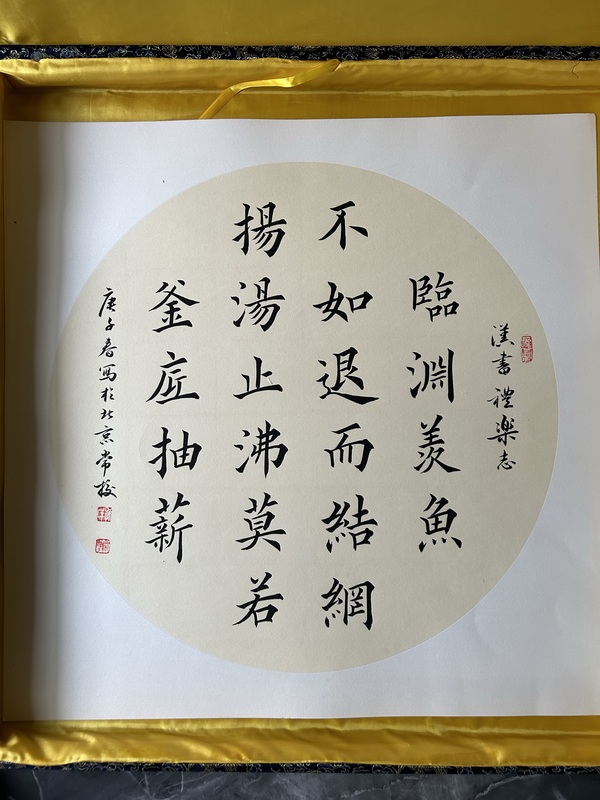 漢書禮樂志
臨淵羨魚
不如退而結網
揚湯止沸莫若
釜底抽薪
庚子春寫於北京常楼